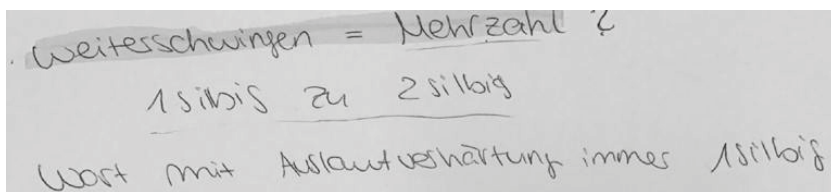 . Weiterschwingen = Mehrzahl ?
1silbig zu 2silbig
Wort mit Auslautverhärtung immer 1silbig